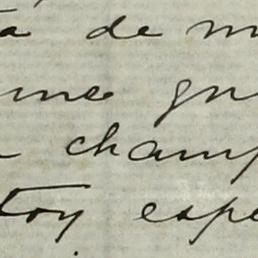 ta de m
me gu
a champ
toy espe